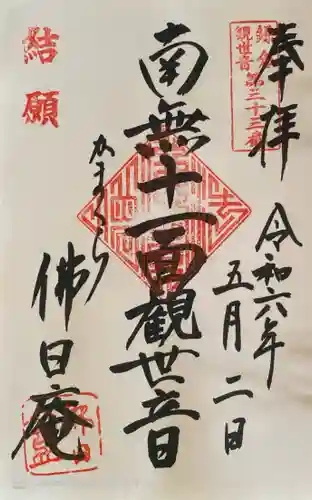 奉拝
鎌倉
観世音第三十三番
令和六年
五月二日
南無十一面観世音
かまくら
佛日庵
結願